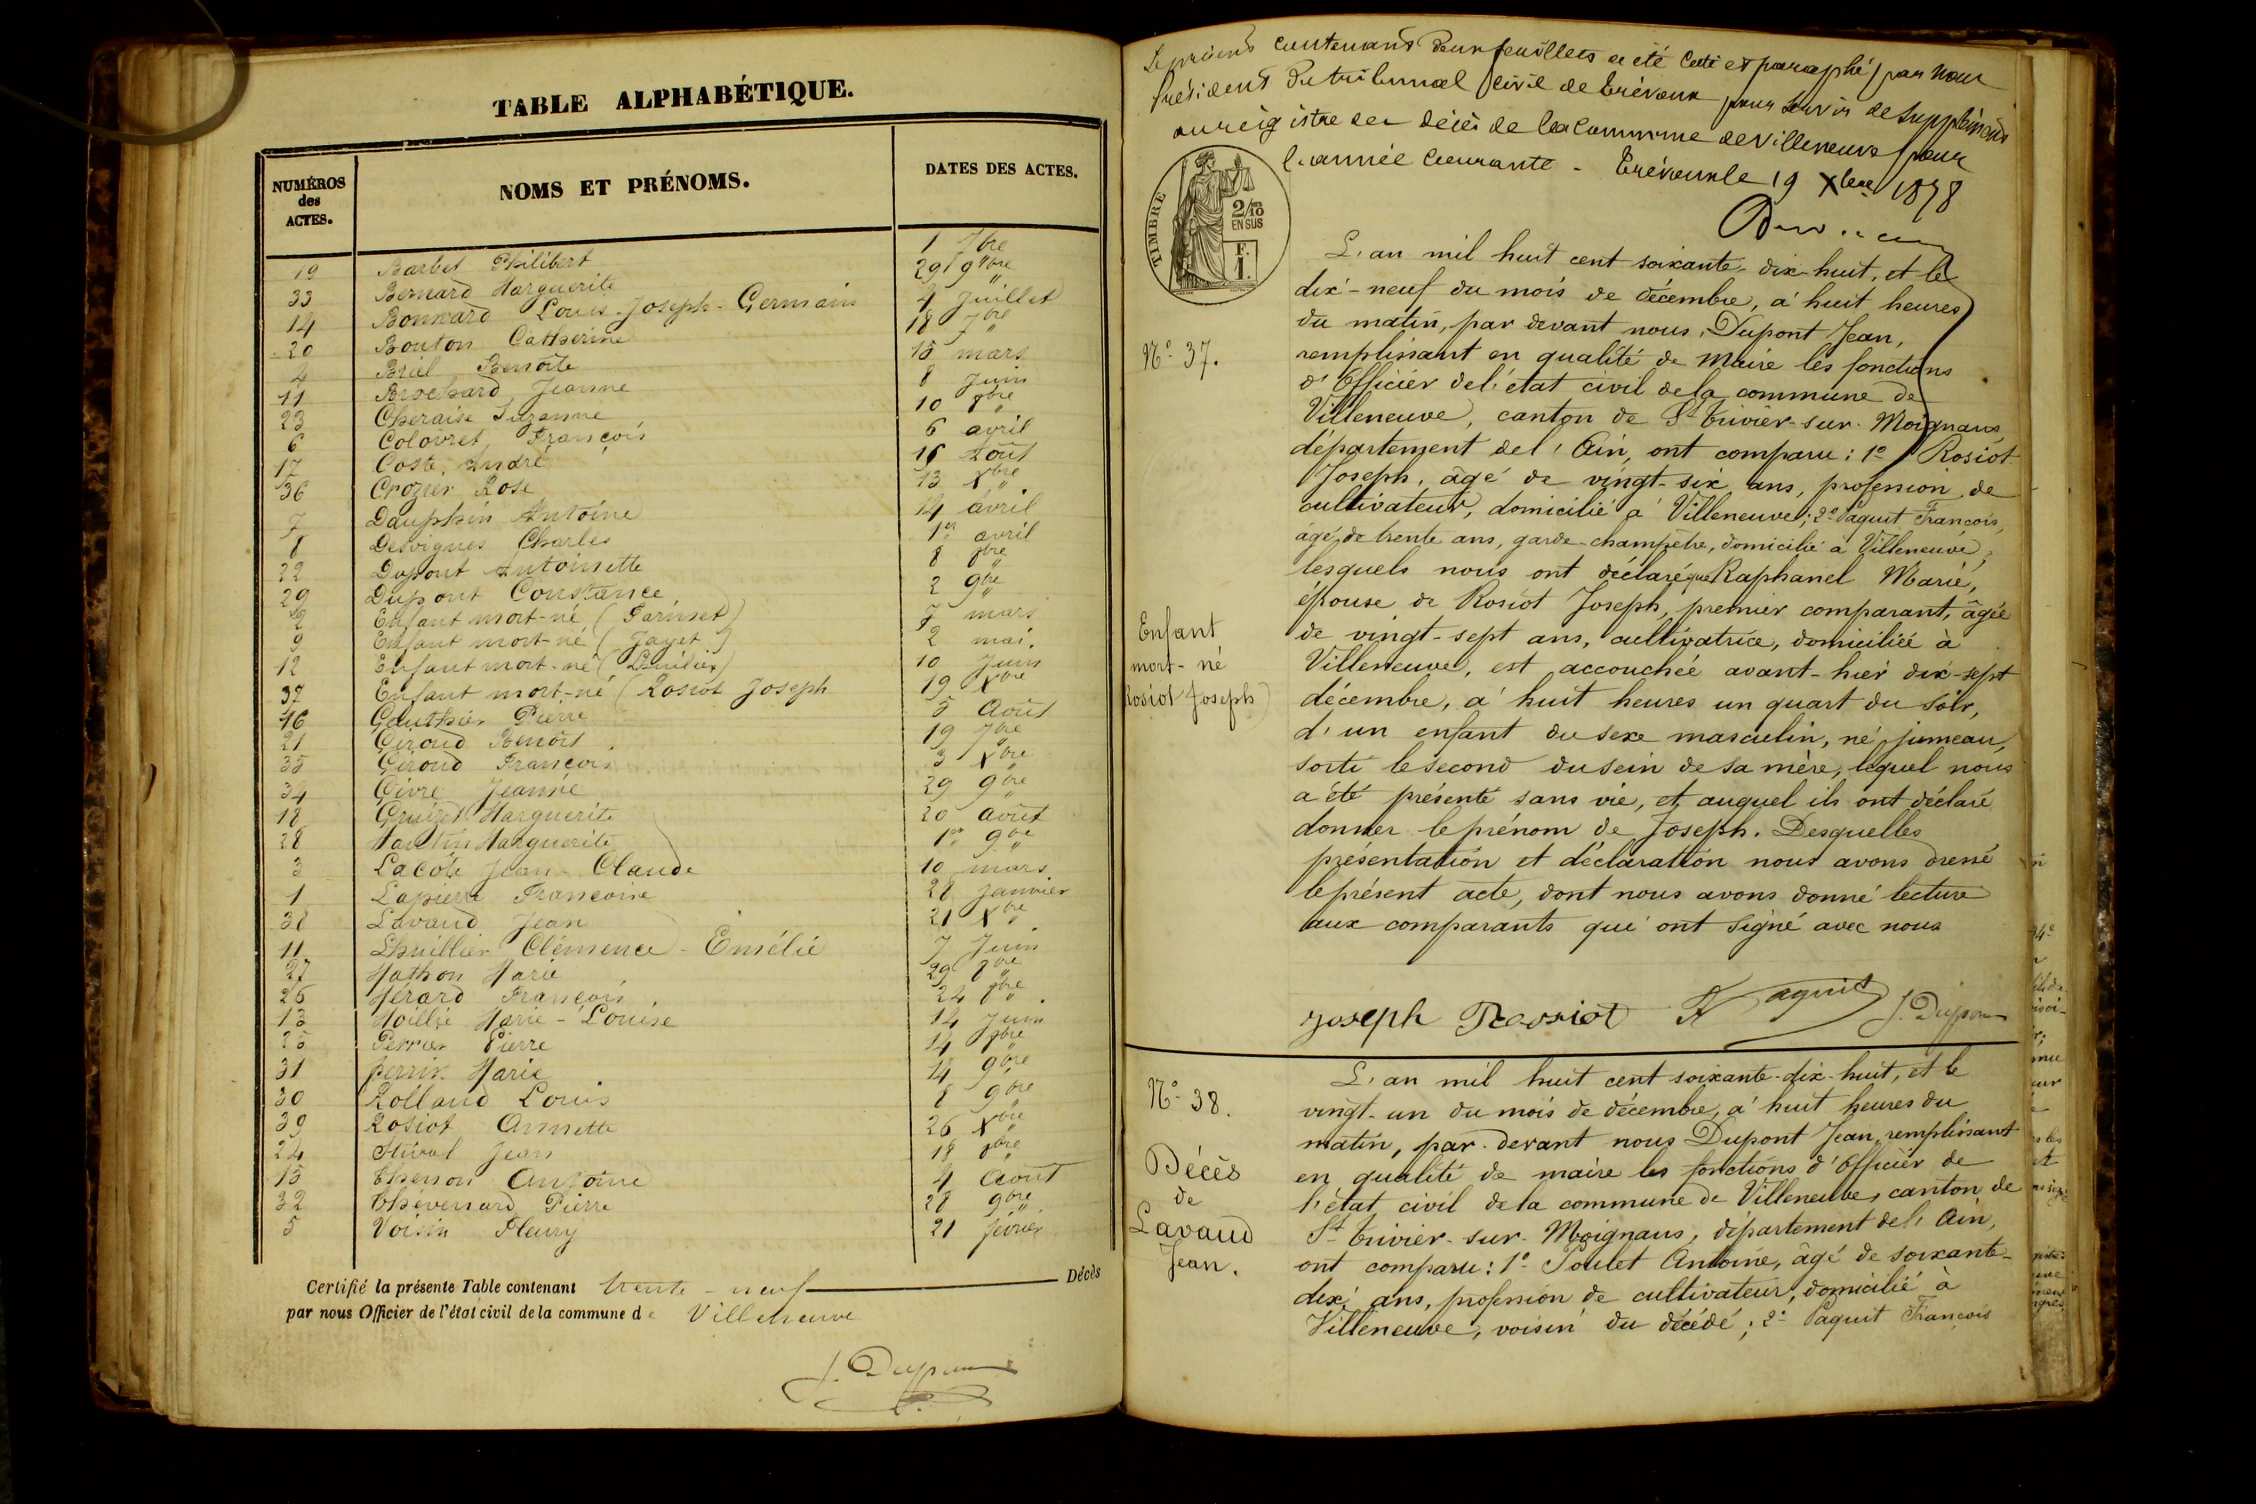 TABLE ALPHABÉTIQUE.
NUMÉROS des ACTES. NOMS ET PRÉNOMS. DATES DES ACTES.
19 Barbet Philibert 1 7bre
33 Bernard Marguerite 29 9bre
14 Bonnard Louis-Joseph-Germain 4 Juillet
20 Bouton Catherine 18 7bre
4 Benoîte 15 mars
11 Brochard Jeanne 8 Juin
23 Suzanne 10 8bre
6 François 6 avril
17 Coste, André 16 Août
36 Crozier Rose 13 Xbre
7 Dauphin Antoine 14 avril
8 Desvignes Charles 1er avril
22 Dupont Antoinette 8 8bre
29 Dupont Constance 2 9bre
2 Enfant mort-né 7 mars
9 Enfant mort-né (Gayet) 2 mai.
12 Enfant mort-né 10 Juin
37 Enfant mort-né (Rosiot Joseph 19 Xbre
16 Gauthier Pierre 5 Août
21 Giroud Benoît 19 7bre
35 Giroud François 3 Xbre
34 Givre Jeanne 29 9bre
18 Marguerite 20 août
28 Marguerite 1er 9bre
3 Lacôte Jean-Claude 10 mars
1 Lapierre Françoise 28 Janvier
38 Lavaud Jean 21 Xbre
11 Lhuillier Clémence-Emélie 7 Juin
27 Mathon Marie 29 8bre
26 Mérard François 24 8bre
13 Marie-Louise 14 Juin
25 Perrier Pierre 14 8bre
31 Perrin Marie 14 9bre
30 Rolland Louis 8 9bre
39 Rosiot Annette 26 Xbre
24 Jean 18 8bre
15 Antoine 4 Août
32 Thévenard Pierre 28 9bre
5 Voisin Fleury 21 février
Certifié la présente Table contenant trente-neuf Décès
par nous Officier de l'état civil de la commune de Villeneuve
J. Dupont
Le présent contenant deux feuillets a été coté et paraphé par nous
Président du tribunal civil de Trévoux pour servir de supplément
au registre des décès de la commune de Villeneuve pour
l'année courante - Trévoux le 19 Xbre 1878
TIMBRE
2/10
EN SUS
F.
1.
L'an mil huit cent soixante-dix-huit, et le
dix-neuf du mois de décembre, à huit heures
du matin, par devant nous, Dupont Jean,
Nº 37.
remplissant en qualité de Maire les fonctions
d'Officier de l'état civil de la commune de
Villeneuve, canton de St Trivier-sur-Moignans
département de l'Ain, ont comparu: 1º Rosiot
Joseph, âgé de vingt-six ans, profession de
cultivateur, domicilié à Villeneuve; 2º Paquit François,
âgé de trente ans, garde-champêtre, domicilié à Villeneuve;
lesquels nous ont déclaré que Raphanel Marie,
épouse de Rosiot Joseph, premier comparant, âgée
Enfant
mort-né
Rosiot Joseph
de vingt-sept ans, cultivatrice, domiciliée à
Villeneuve, est accouchée avant-hier dix-sept
décembre, à huit heures un quart du soir,
d'un enfant du sexe masculin, né jumeau,
sorti le second du sein de sa mère, lequel nous
a été présenté sans vie, et auquel ils ont déclaré
donner le prénom de Joseph. Desquelles
présentation et déclaration nous avons dressé
le présent acte, dont nous avons donné lecture
aux comparants qui ont signé avec nous
Joseph Rossiot F Paquit J. Dupont
Nº 38.
L'an mil huit cent soixante-dix-huit, et le
vingt-un du mois de décembre, à huit heures du
matin, par-devant nous Dupont Jean, remplissant
Décès
de
Lavaud
Jean.
en qualité de maire les fonctions d'Officier de
l'état civil de la commune de Villeneuve, canton de
St Trivier-sur-Moignans, département de l'Ain,
ont comparu: 1º Poulet Antoine, âgé de soixante-
dix ans, profession de cultivateur, domicilié à
Villeneuve, voisin du décédé; 2º Paquit François